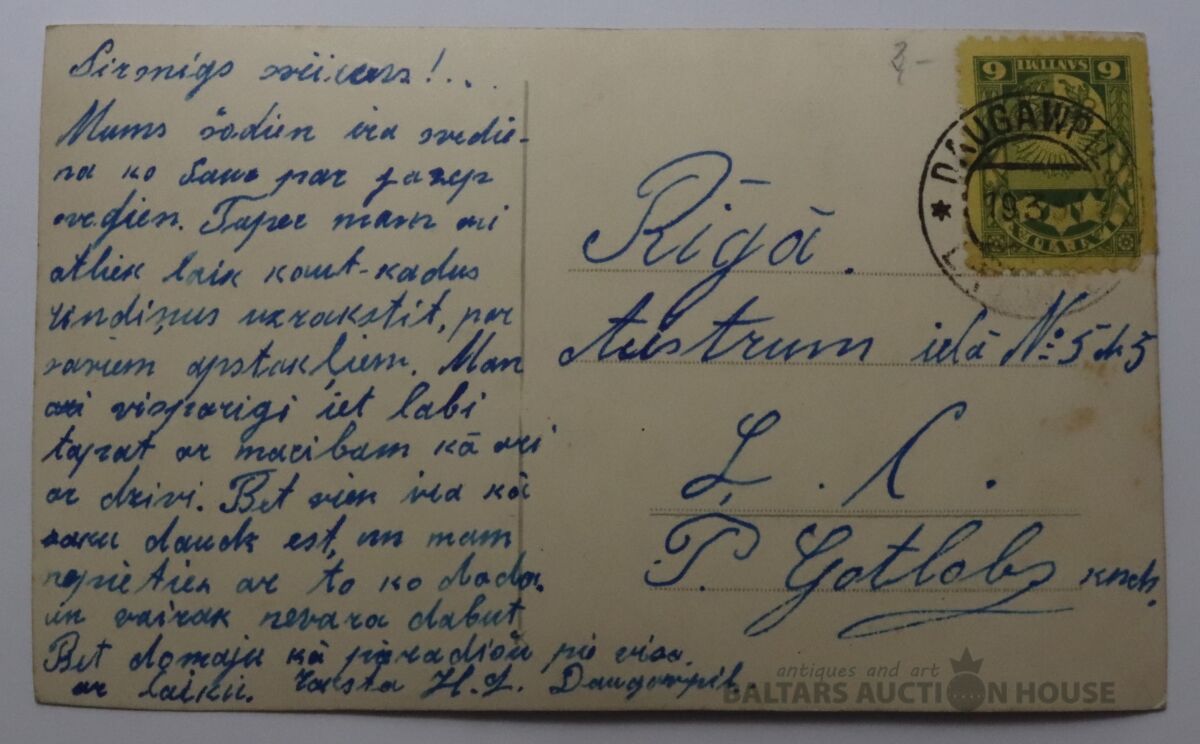 Sirsnigs sveiciens!..
Mums šodien ira svedie-
na ko sauc par jazep
svedien. Taper mam ari
atliek laik kaut-kadus
rindiņus uzrakstit, par
saviem apstakļiem. Man
ari visparigi iet labi
taprat ar macibam kā ari
ar dzivi. Bet vien ira kā
saku daudz est, un mam
nepietiek ar to ko doda.
un vairak nevara dabut
Bet domaju kā pieradišu pie visa
ar laiku. Raksta H. L. Daugavpil.
8,-
6 SANTIMI 6
LATVIJA
DAUGAWPILĪ
19.3
Rīgā.
Austrum ielā № 5 dz 5
Ļ. C.
P. Gotlobs kndr.
antiques and art
BALTARS AUCTION HOUSE